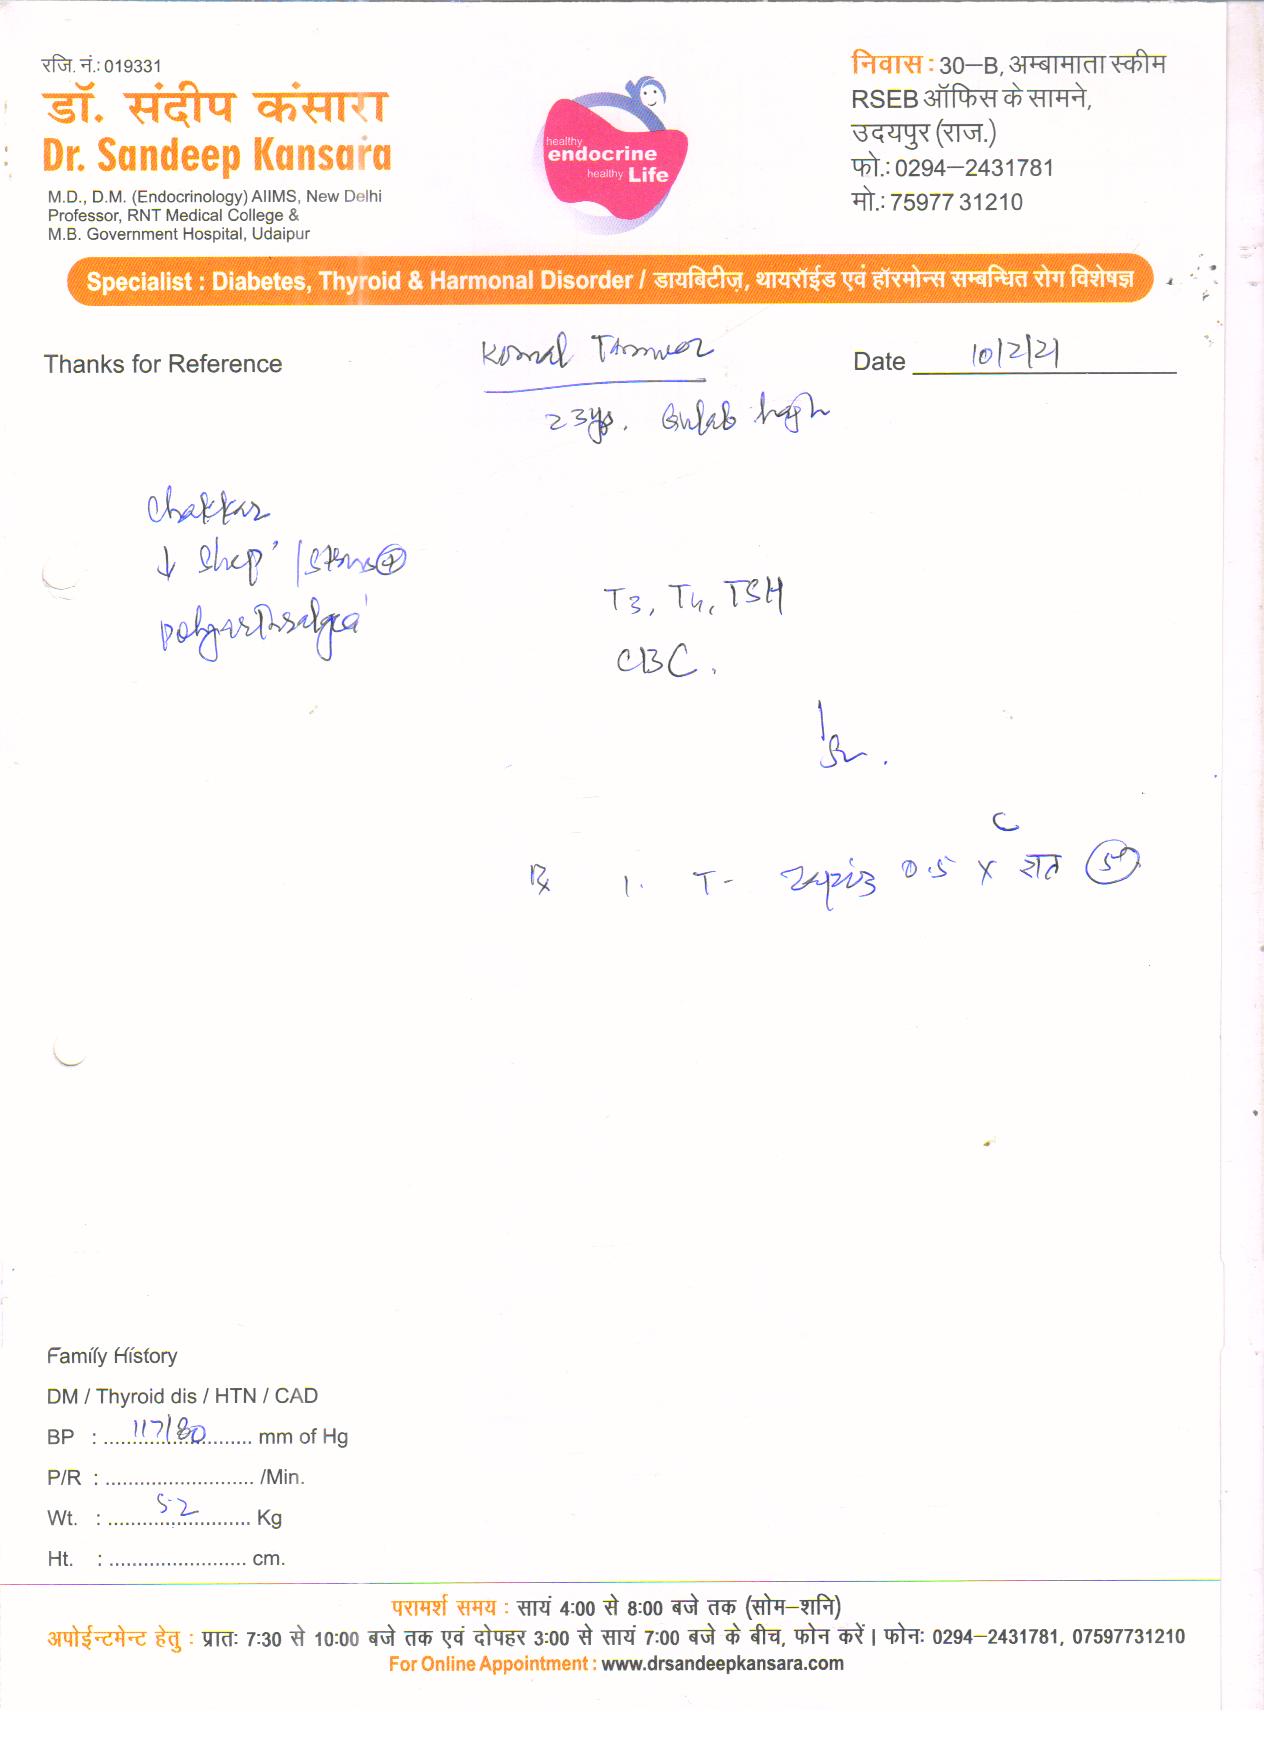 रजि. नं.: 019331
डॉ. संदीप कंसारा
Dr. Sandeep Kansara
M.D., D.M. (Endocrinology) AIIMS, New Delhi
Professor, RNT Medical College &
M.B. Government Hospital, Udaipur
healthy
endocrine
healthy Life
निवास : 30–B, अम्बामाता स्कीम
RSEB ऑफिस के सामने,
उदयपुर (राज.)
फो.: 0294–2431781
मो.: 75977 31210
Specialist : Diabetes, Thyroid & Harmonal Disorder / डायबिटीज़, थायरॉईड एवं हॉरमोन्स सम्बन्धित रोग विशेषज्ञ
Thanks for Reference
Komal Tanwar
Date 10/2/21
23yrs. Gulab bagh
Chakkar
↓ Sleep / Stress ⊕
polyarthralgia
T3, T4, TSH
CBC.
℞ 1. T- 0.5 x रात
Family History
DM / Thyroid dis / HTN / CAD
BP : 117/80 mm of Hg
P/R : /Min.
Wt. : 52 Kg
Ht. : cm.
परामर्श समय : सायं 4:00 से 8:00 बजे तक (सोम–शनि)
अपोईन्टमेन्ट हेतु : प्रातः 7:30 से 10:00 बजे तक एवं दोपहर 3:00 से सायं 7:00 बजे के बीच, फोन करें। फोनः 0294–2431781, 07597731210
For Online Appointment : www.drsandeepkansara.com